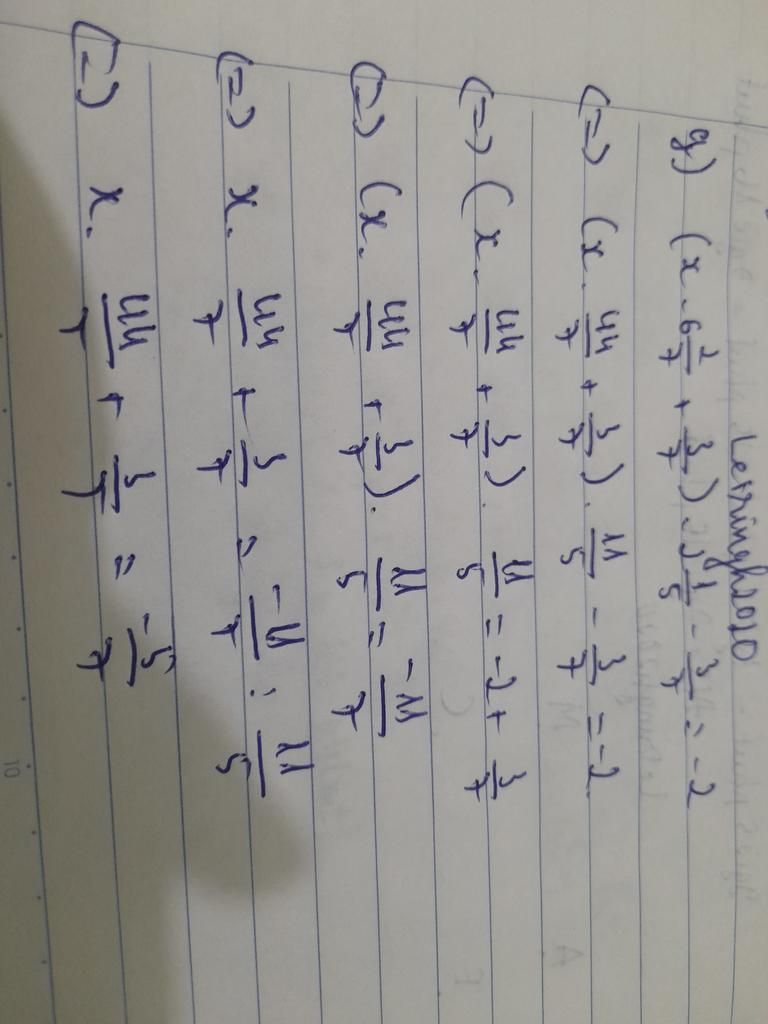 Letrinh2010
g) (x . 6 2/7 + 3/7) . 2 1/5 - 3/7 = -2
(=) (x . 44/7 + 3/7) . 11/5 - 3/7 = -2.
(=) (x . 44/7 + 3/7) . 11/5 = -2 + 3/7
(=) (x . 44/7 + 3/7) . 11/5 = -11/7
(=) x . 44/7 + 3/7 = -11/7 : 11/5
(=) x . 44/7 + 3/7 = -5/7